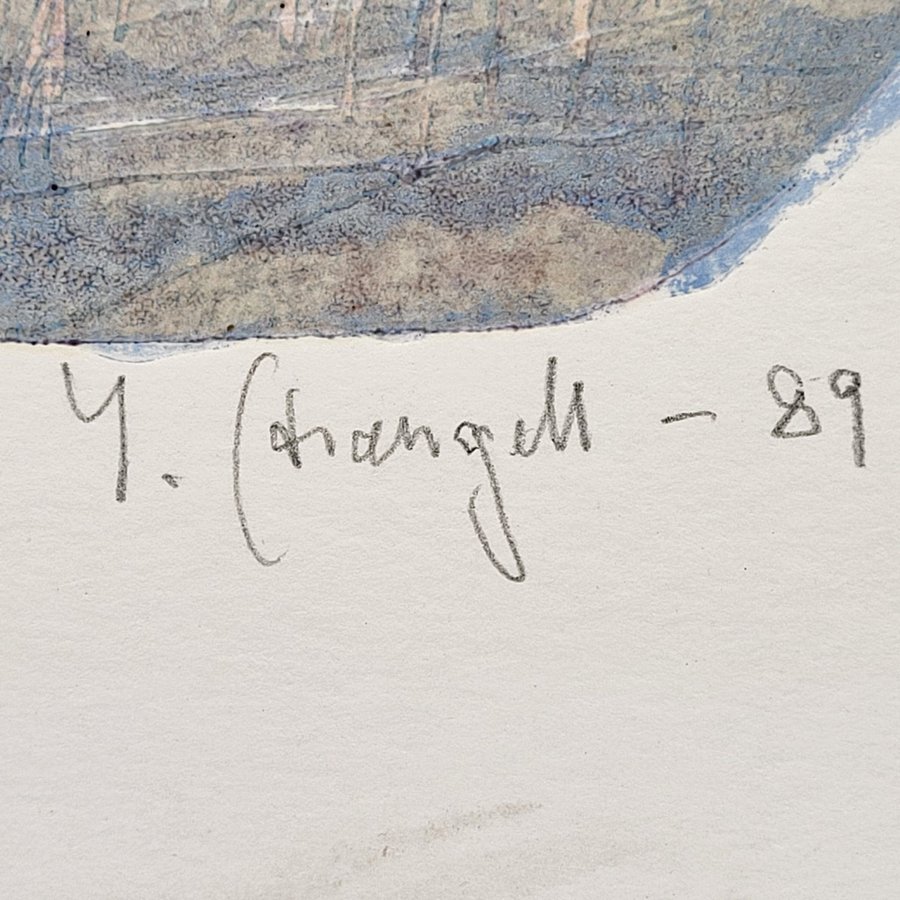 Y. Strangell - 89